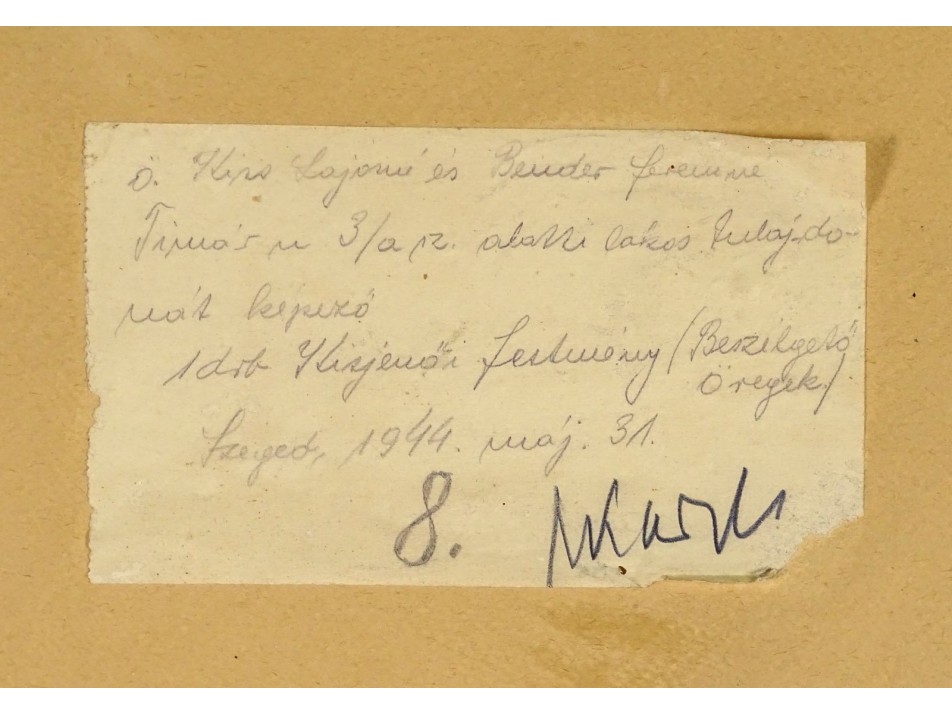 ö. Kiss Lajosné és Bender Ferencne
Timár u 3/a sz. alatti lakos tulajdo-
nát képező
1 drb Kisjenői festmény (Beszélgető
öregek)
Szeged, 1944. máj. 31.
8.